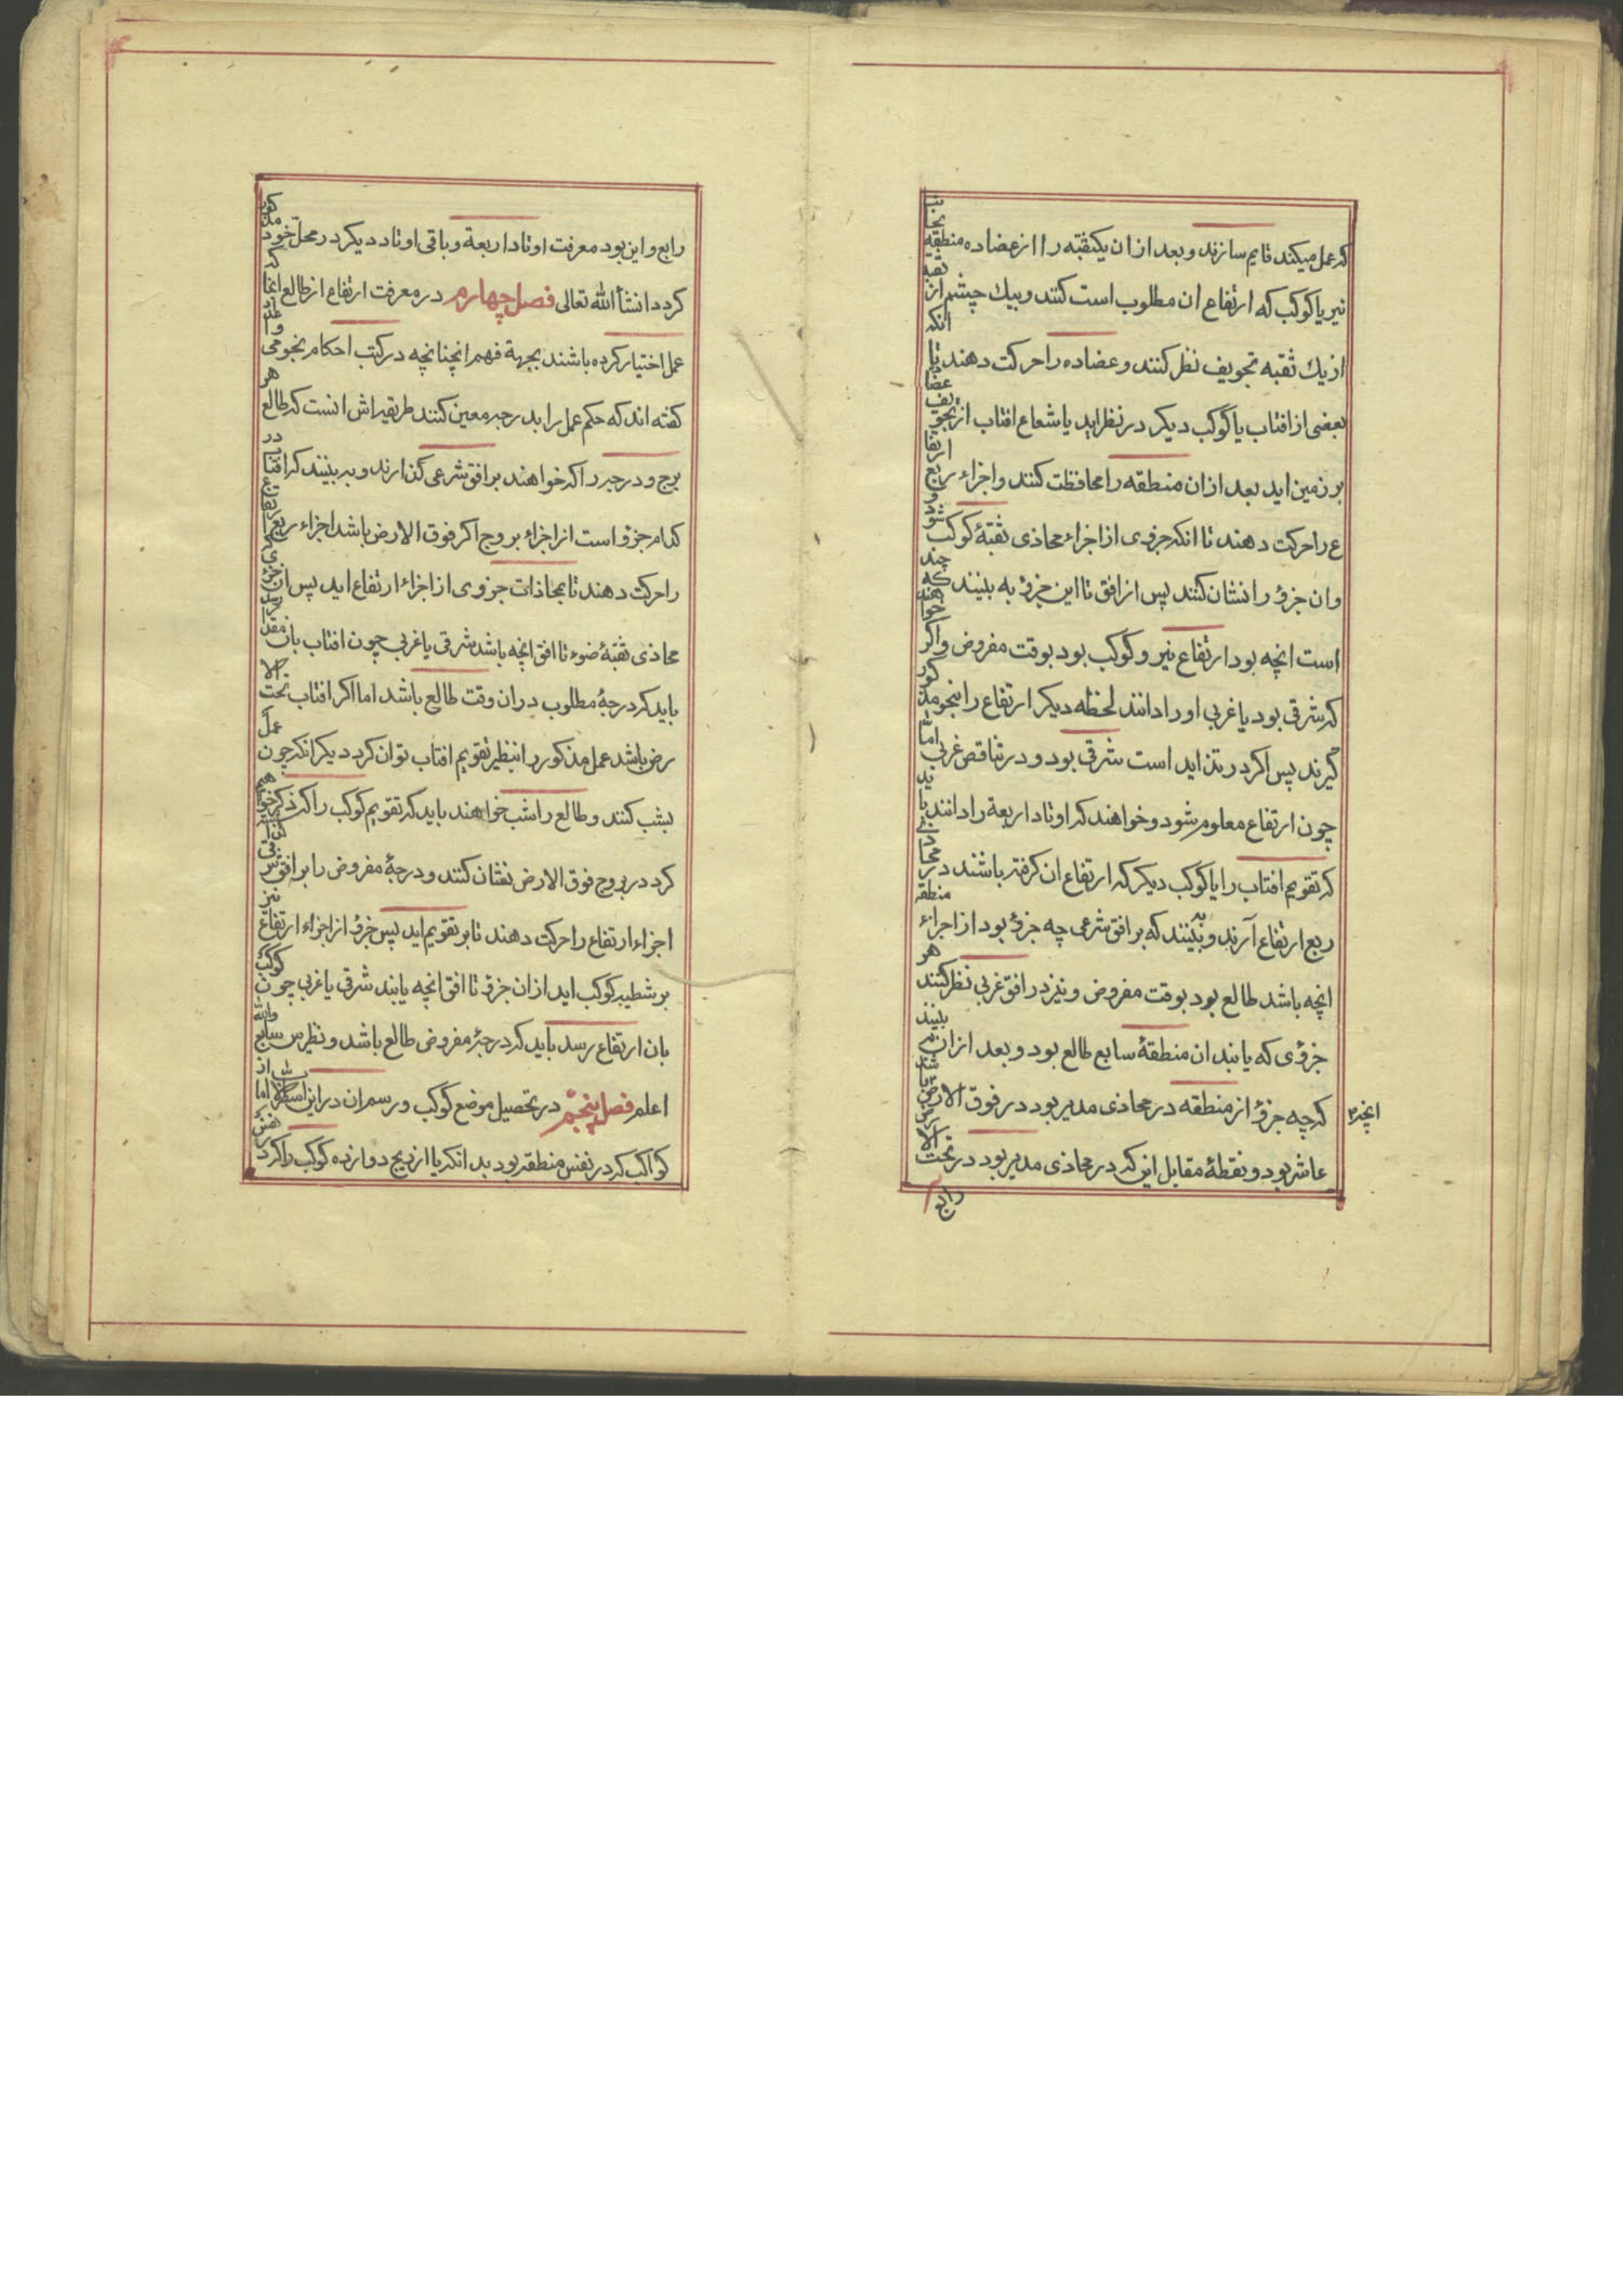 که عمل میکنند قایم سازند و بعد از ان یکثقبه را از عضاده منطقه بجانب
نیر یا کوکب که ارتفاع ان مطلوب است کنند و بیك چشم از ثقبه
از یك ثقبه تجویف نظر کنند و عضاده را حرکت دهند تا انکه
بعضی از افتاب یا کوکب دیکر در نظر اید یا شعاع افتاب از تجویف عضا
بر زمین اید بعد از ان منطقه را محافظت کنند و اجزاء ربع ارتفا
ع را حرکت دهند تا انکه جزوی از اجزاء محاذی ثقبهٔ کوکب شود
وان جزؤ را نشان کنند پس از افق تا این جزؤ به بینند که چند
است انچه بود ارتفاع نیر و کوکب بود بوقت مفروض واکر خواهند
که شرقی بود یا غربی او را دانند لحظه دیکر ارتفاع را بنحو مذکور
کیرند پس اکر در تزاید است شرقی بود و در تناقص غربی اما
چون ارتفاع معلوم شود و خواهند که اوتاد اربعة را دانند باید
که تقویم افتاب را یا کوکب دیکر که ارتفاع ان کرفته باشند در محاذی
ربع ارتفاع آرند و به بینند که بر افق شرعی چه جزؤ بود از اجزاء منطقه
انچه باشد طالع بود بوقت مفروض و نیز در افق غربی نظر کنند هر
جزؤی که یابند ان منطقهٔ سابع طالع بود و بعد ازان بینند
که چه جزؤ از منطقه در محاذی مدیر بود در فوق الارض انچه باشد
عاشر بود و نقطهٔ مقابل این که در محاذی مدیر بود در تحت الارض
رابع
رابع و این بود معرفت اوتاد اربعة و باقی اوتاد دیکر در محل خود مذکور
کردد انشأ الله تعالی فصل چهارم در معرفت ارتفاع از طالع انجا که
عمل اختیار کرده باشند بجهة فهم انچنانچه در کتب احکام نجومی
کفته اند که حکم عمل را بدرجه معین کنند طریقه اش انست که طالع هر
برج و درجه را که خواهند بر افق شرعی کذارند و به بینند که افتاب در
کدام جزؤ است از اجزاء بروج اکر فوق الارض باشد اجزاء ربع ارتفاع
را حرکت دهند تا بمحاذات جزوی از اجزاء ارتفاع اید پس ان جزؤ
محاذی ثقبهٔ ضوء تا افق انچه باشد شرقی یا غربی چون افتاب بان مقدار
باید که درجهٔ مطلوب در ان وقت طالع باشد اما اکر افتاب تحت الا
رض باشد عمل مذکور را بنظیر تقویم افتاب توان کرد دیکر انکه چون عمل
بشب کنند و طالع را شب خواهند باید که تقویم کوکب را که ذکر خواهیم
کرد در بروج فوق الارض نشان کنند و درجهٔ مفروض را بر افق شرقی
اجزاء ارتفاع را حرکت دهند تا بر تقویم اید پس جزؤ از اجزاء ارتفاع نیز
بر شطیه کوکب اید از ان جزؤ تا افق انچه یابند شرقی یا غربی چون کوکب
بان ارتفاع رسد باید که درجهٔ مفروض طالع باشد و نظیرس سابع والله
اعلم فصل پنجم در تحصیل موضع کوکب و رسم ان در این اسطرلاب اما از
کواکب که در نفس منطقه بود بدانکه یا از زیج دوازده کوکب را کرد